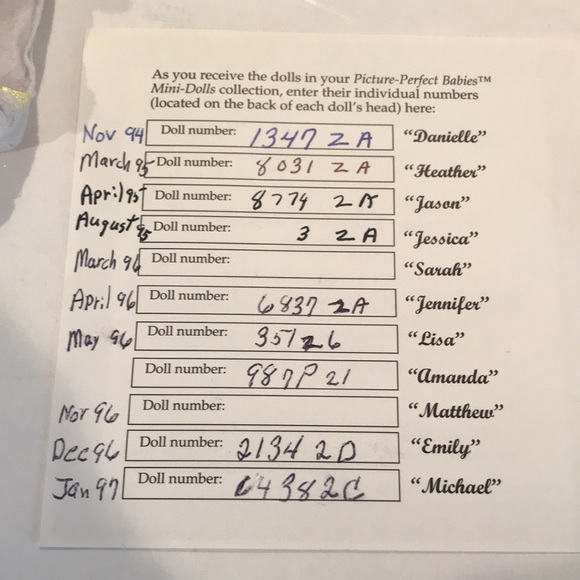 As you receive the dolls in your Picture-Perfect Babies™
Mini-Dolls collection, enter their individual numbers
(located on the back of each doll's head) here:
Nov 94 Doll number: 1347 ZA "Danielle"
March 95 Doll number: 8031 ZA "Heather"
April 95 Doll number: 8774 "Jason"
August 95 Doll number: 3 ZA "Jessica"
March 96 Doll number: "Sarah"
April 96 Doll number: 6837 ZA "Jennifer"
May 96 Doll number: "Lisa"
Doll number: 987P 21 "Amanda"
Nov 96 Doll number: "Matthew"
Dec 96 Doll number: 2134 2D "Emily"
Jan 97 Doll number: "Michael"